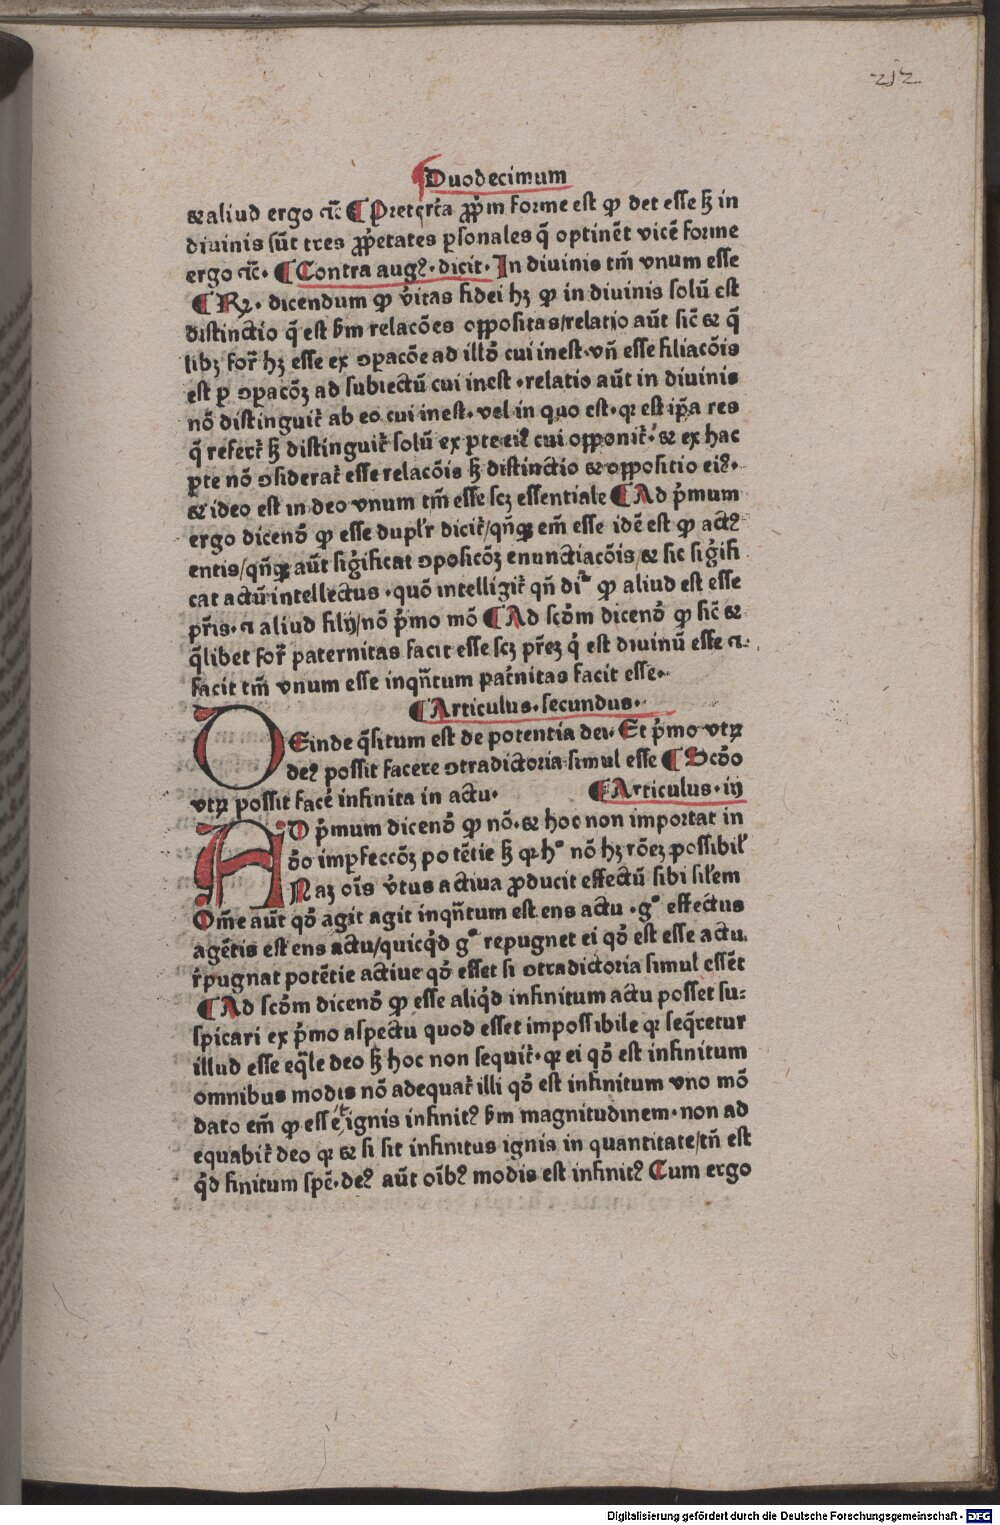 212
Duodecimum
⁊ aliud ergo ⁊c̃ ¶ Preterea ꝓp̃m forme est ꝙ det esse sꝫ in
diuinis sũt tres ꝓp̃etates ꝑsonales q̃ optinẽt vicẽ forme
ergo ⁊c̃. ¶ Contra augꝰ. dicit. In diuinis tm̃ vnum esse
¶ Rꝫ. dicendum ꝙ v̓itas fidei hꝫ ꝙ in diuinis solũ est
distinctio q̃ est ẜm relacões oppositas/relatio aũt sic̃ ⁊ q̃
libꝫ for̃ hꝫ esse ex ꝯpacõe ad illð cui inest. vñ esse filiacõis
est ꝑ ꝯpacõꝫ ad subiectũ cui inest. relatio aũt in diuinis
nõ distinguit̃ ab eo cui inest. vel in quo est. qꝛ est ip̃a res
q̃ refert̃ sꝫ distinguit̃ solũ ex ꝑte eiꝰ cui opponit̃. ⁊ ex hac
ꝑte nõ ꝯsiderat̃ esse relacõis sꝫ distinctio ⁊ oppositio eiꝰ.
⁊ ideo est in deo vnum tm̃ esse scꝫ essentiale ¶ Ad p̓mum
ergo dicenð ꝙ esse duplr̃ dicit̃/qñqꝫ em̃ esse idẽ est ꝙ actꝰ
entis/qñqꝫ aũt sig̓ificat ꝯposicõꝫ enunctiacõis/⁊ sic sig̓ifi
cat actũ intellectus. quõ intelligit̃ qñ dr̃ ꝙ aliud est esse
pr̃is. ⁊ aliud filij/nõ p̓mo mõ ¶ Ad scðm dicenð ꝙ sic̃ ⁊
q̃libet for̃ paternitas facit esse scꝫ pr̃eꝫ q̓ est diuinũ esse ⁊.
facit tm̃ vnum esse inqñtum pat̃nitas facit esse.
¶ Articulus. secundus.
DEinde q̃situm est de potentia dei. Et p̓mo vtꝝ
deꝰ possit facere ꝯtradictoria simul esse ¶ Scðo
vtꝝ possit face̓ infinita in actu. ¶ Articulus. iij
AD p̓mum dicenð ꝙ nõ. ⁊ hoc non importat in
ðo imꝑfeccõꝫ potẽtie sꝫ qꝛ hº nõ hꝫ rõeꝫ possibil̓
Naꝫ oĩs v̓tus actiua ꝓducit effectũ sibi sil̓em
Om̃e aũt qð agit agit inqñtum est ens actu. gº effectus
agẽtis est ens actu/quicq̓d gº repugnet ei qð est esse actu
r̓pugnat potẽtie actiue qð esset si ꝯtradictoria simul essẽt
¶ Ad scðm dicenð ꝙ esse aliq̓d infinitum actu posset su⸗
spicari ex p̓mo aspectu quod esset impossibile qꝛ seq̃retur
illud esse eq̃le deo sꝫ hoc non sequit̃. qꝛ ei qð est infinitum
omnibus modis nõ adequat̃ illi qð est infinitum vno mõ
dato em̃ ꝙ esset ignis infinitꝰ ẜm magnitudinem. non ad
equabit̃ deo qꝛ ⁊ si sit infinitus ignis in quantitate/tñ est
q̓d finitum spẽ. deꝰ aũt oĩbꝰ modis est infinitꝰ Cum ergo
Digitalisierung gefördert durch die Deutsche Forschungsgemeinschaft - DFG